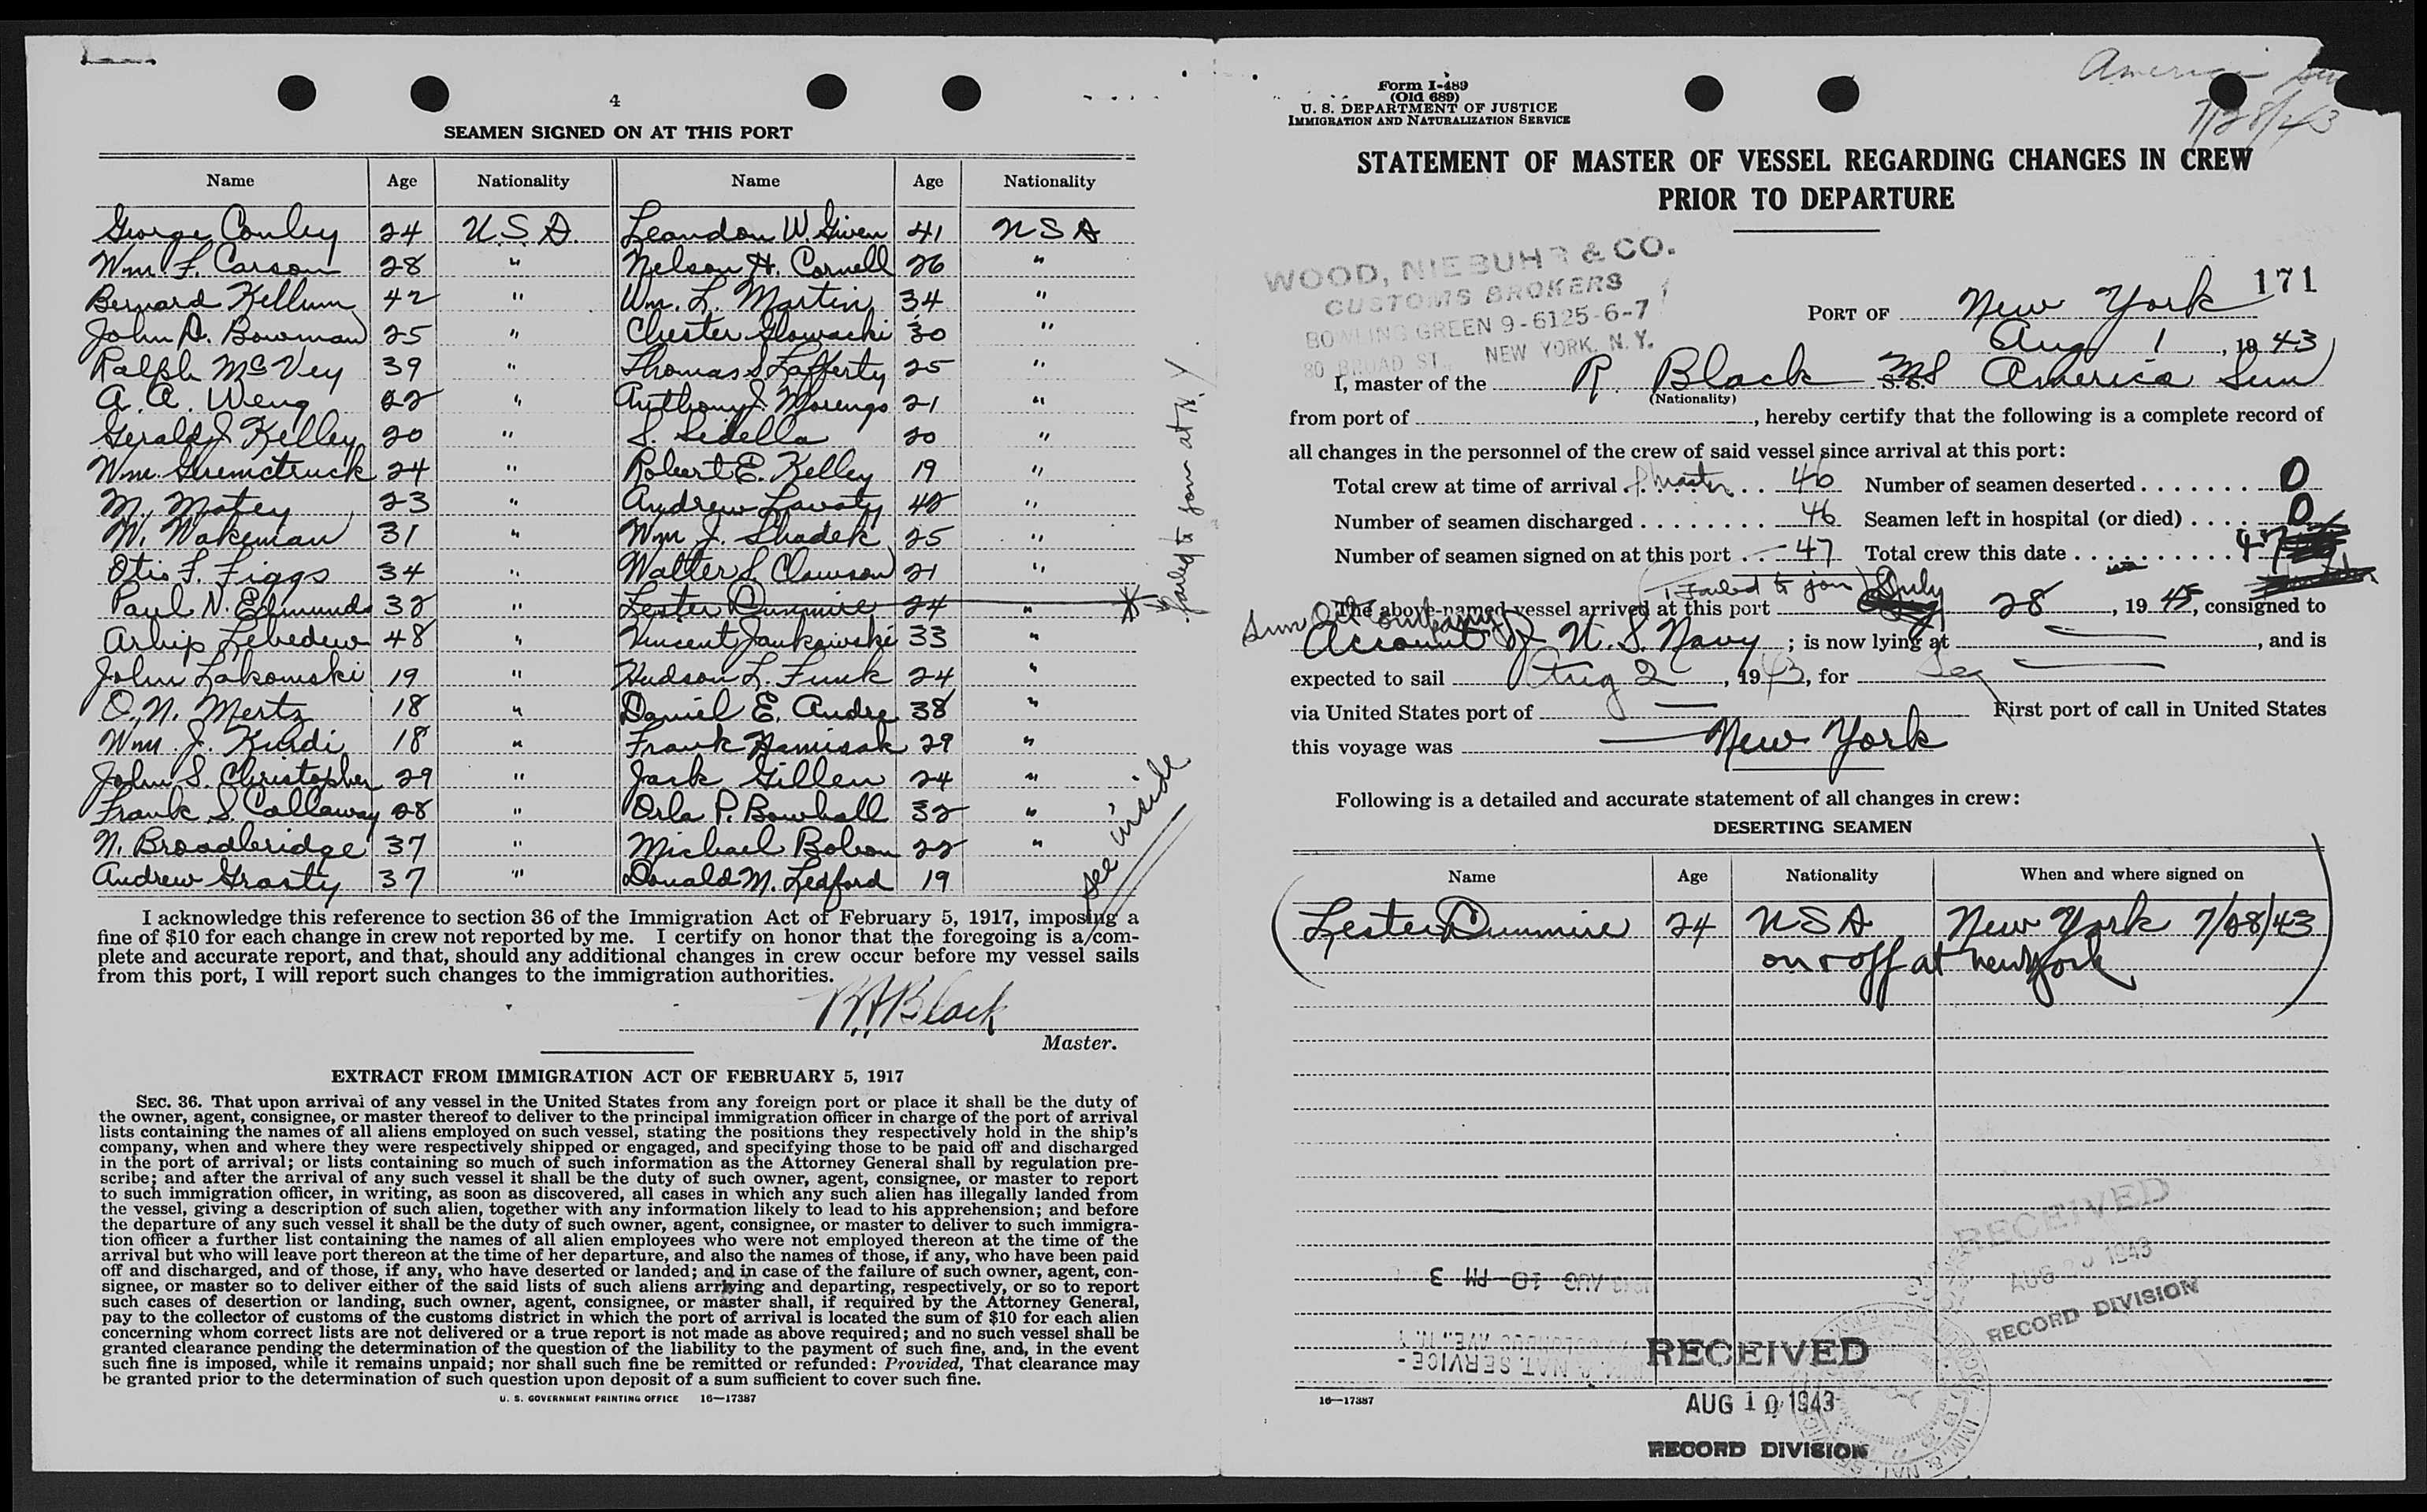 4
SEAMEN SIGNED ON AT THIS PORT
Name Age Nationality Name Age Nationality
George Conley 24 U.S.A. Leandon W. Given 41 USA
Wm. F. Carson 28 " Nelson H. Cornell 26 "
Bernard Kellum 42 " Wm. L. Martin 34 "
John D. Bowman 25 " Chester Glowacki 30 "
Ralph McVey 39 " Thomas S. Lafferty 25 "
A. A. Weng 22 " Anthony J. Morengo 21 "
Gerald J. Kelley 20 " S. Sidella 20 "
Wm. 24 " Robert E. Kelley 19 "
M. Matey 23 " Andrew Lavaty 42 "
W. Wakeman 31 " Wm. J. Shadek 25 "
Otis F. Figgs 34 " Walter S. Clawson 21 "
Paul N. Edmunds 32 " Lester Dunmire 24 "
Arhip Lebedew 48 " Vincent Jankowski 33 "
John Lakomski 19 " Hudson L. Funk 24 "
O. N. Mertz 18 " Daniel E. Andre 38 "
Wm. J. Kurdi 18 " Frank Hamisak 29 "
John S. Christopher 29 " Jack Gillen 24 "
Frank S. Callaway 28 " Orla P. Bowhall 32 "
N. Broadbridge 37 " Michael Bobon 22 "
Andrew Grasty 37 " Donald M. Ledford 19 "
failed to join at N.Y.
see inside
I acknowledge this reference to section 36 of the Immigration Act of February 5, 1917, imposing a
fine of $10 for each change in crew not reported by me. I certify on honor that the foregoing is a com-
plete and accurate report, and that, should any additional changes in crew occur before my vessel sails
from this port, I will report such changes to the immigration authorities.
R Black
Master.
EXTRACT FROM IMMIGRATION ACT OF FEBRUARY 5, 1917
SEC. 36. That upon arrival of any vessel in the United States from any foreign port or place it shall be the duty of
the owner, agent, consignee, or master thereof to deliver to the principal immigration officer in charge of the port of arrival
lists containing the names of all aliens employed on such vessel, stating the positions they respectively hold in the ship's
company, when and where they were respectively shipped or engaged, and specifying those to be paid off and discharged
in the port of arrival; or lists containing so much of such information as the Attorney General shall by regulation pre-
scribe; and after the arrival of any such vessel it shall be the duty of such owner, agent, consignee, or master to report
to such immigration officer, in writing, as soon as discovered, all cases in which any such alien has illegally landed from
the vessel, giving a description of such alien, together with any information likely to lead to his apprehension; and before
the departure of any such vessel it shall be the duty of such owner, agent, consignee, or master to deliver to such immigra-
tion officer a further list containing the names of all alien employees who were not employed thereon at the time of the
arrival but who will leave port thereon at the time of her departure, and also the names of those, if any, who have been paid
off and discharged, and of those, if any, who have deserted or landed; and in case of the failure of such owner, agent, con-
signee, or master so to deliver either of the said lists of such aliens arriving and departing, respectively, or so to report
such cases of desertion or landing, such owner, agent, consignee, or master shall, if required by the Attorney General,
pay to the collector of customs of the customs district in which the port of arrival is located the sum of $10 for each alien
concerning whom correct lists are not delivered or a true report is not made as above required; and no such vessel shall be
granted clearance pending the determination of the question of the liability to the payment of such fine, and, in the event
such fine is imposed, while it remains unpaid; nor shall such fine be remitted or refunded: Provided, That clearance may
be granted prior to the determination of such question upon deposit of a sum sufficient to cover such fine.
U. S. GOVERNMENT PRINTING OFFICE 16—17387
America Sun
7/28/43
Form I-489
(Old 689)
U. S. DEPARTMENT OF JUSTICE
IMMIGRATION AND NATURALIZATION SERVICE
STATEMENT OF MASTER OF VESSEL REGARDING CHANGES IN CREW
PRIOR TO DEPARTURE
WOOD, NIEBUHR & CO.
CUSTOMS BROKERS
BOWLING GREEN 9-6125-6-7
80 BROAD ST., NEW YORK, N.Y.
171
PORT OF New York
Aug 1, 1943
I, master of the R Black MS America Sun
(Nationality)
from port of , hereby certify that the following is a complete record of
all changes in the personnel of the crew of said vessel since arrival at this port:
Total crew at time of arrival & Master 46 Number of seamen deserted 0
Number of seamen discharged 46 Seamen left in hospital (or died) 0
Number of seamen signed on at this port 47 Total crew this date 47
1 failed to join
The above-named vessel arrived at this port July 28, 1943, consigned to
Sun Oil Company
Account of U.S. Navy; is now lying at , and is
expected to sail Aug 2, 1943, for Sea
via United States port of — First port of call in United States
this voyage was New York
Following is a detailed and accurate statement of all changes in crew:
DESERTING SEAMEN
Name Age Nationality When and where signed on
Lester Dunmire 24 USA New York 7/28/43
on & off at New York
RECEIVED
AUG 1943
RECORD DIVISION
1943 AUG 10 PM 3
70 COLUMBUS AVE., N.Y.
& NAT. SERVICE-
RECEIVED
AUG 10 1943
RECORD DIVISION
16—17387